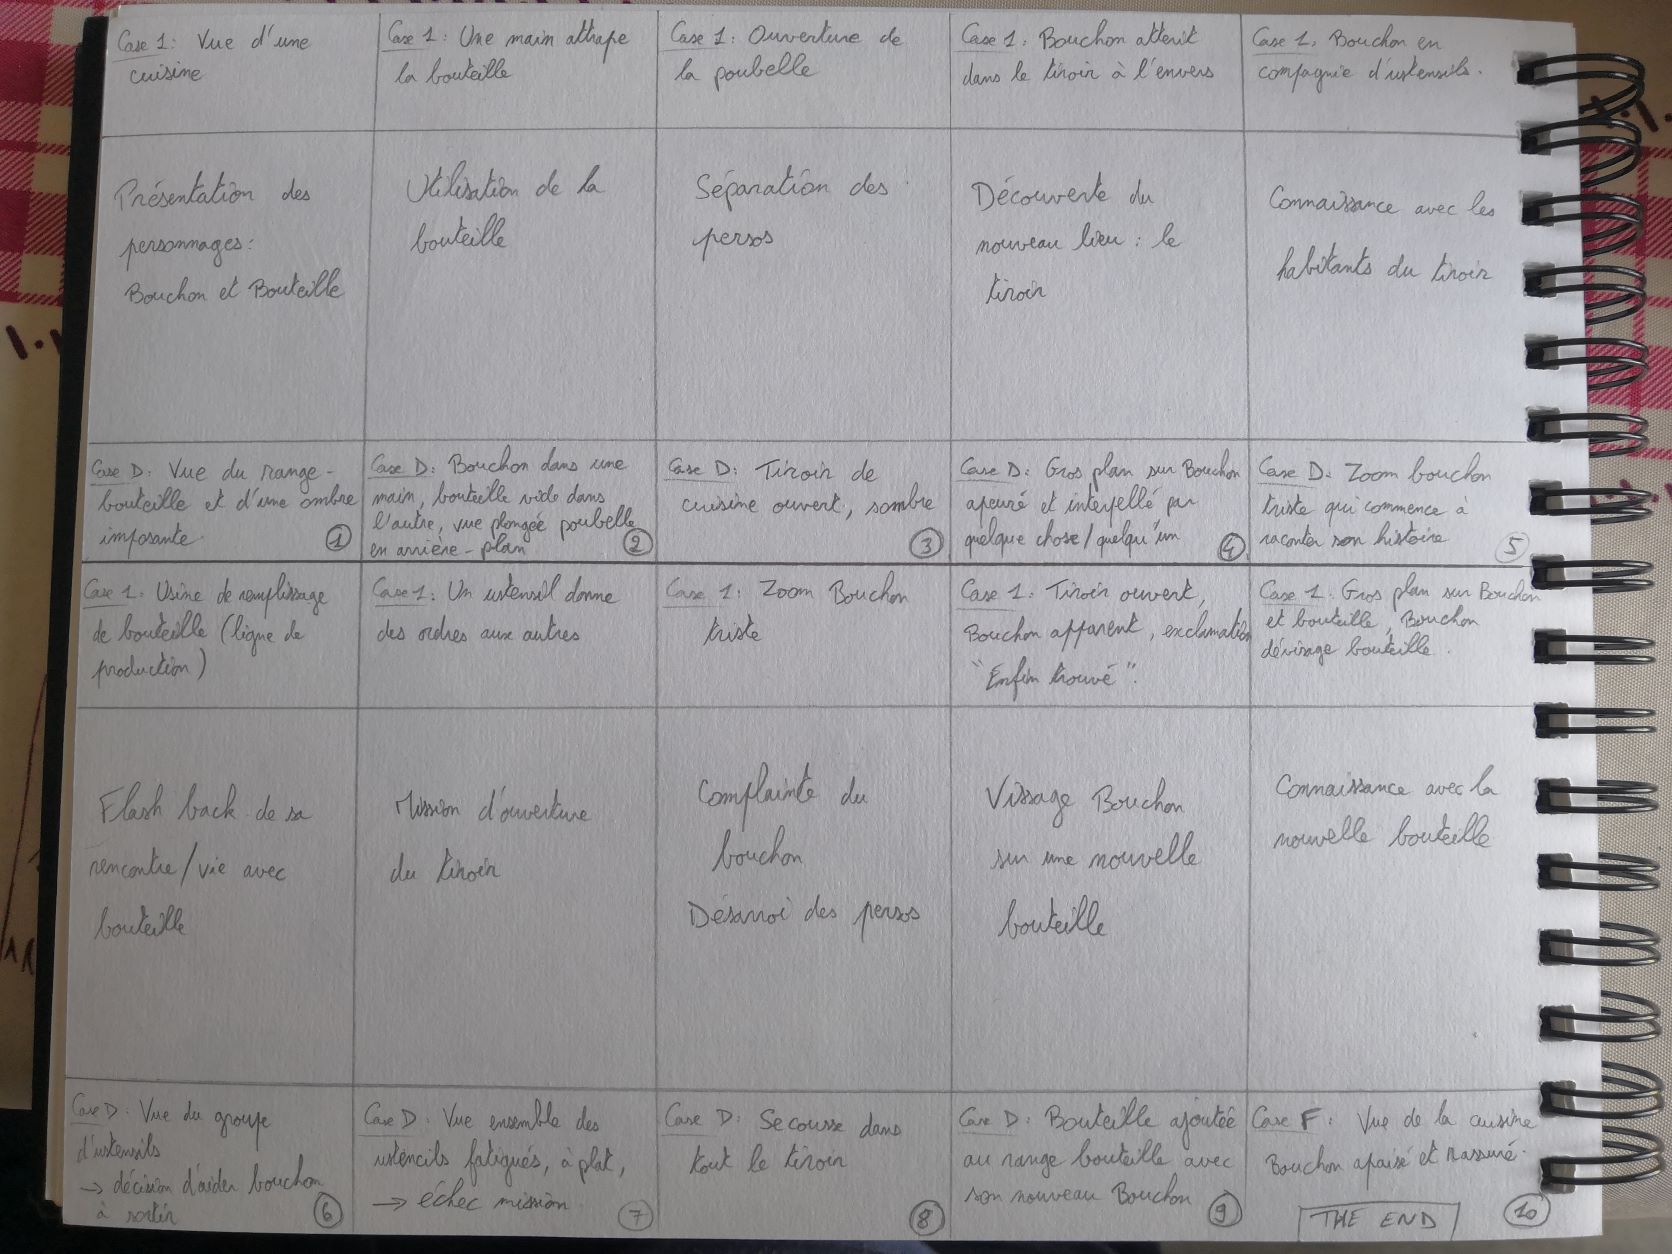 Case 1: Vue d'une
cuisine
Présentation des
personnages:
Bouchon et Bouteille
Case D: Vue du range-
bouteille et d'une ombre
imposante.
1
Case 1: Une main attrape
la bouteille
Utilisation de la
bouteille
Case D: Bouchon dans une
main, bouteille vide dans
l'autre, vue plongée poubelle
en arrière-plan
2
Case 1: Ouverture de
la poubelle
Séparation des
persos
Case D: Tiroir de
cuisine ouvert, sombre
3
Case 1: Bouchon atterit
dans le tiroir à l'envers
Découverte du
nouveau lieu: le
tiroir
Case D: Gros plan sur Bouchon
apeuré et interpellé par
quelque chose/quelqu'un
4
Case 1: Bouchon en
compagnie d'ustensils.
Connaissance avec les
habitants du tiroir
Case D: Zoom bouchon
triste qui commence à
raconter son histoire
5
Case 1: Usine de remplissage
de bouteille (ligne de
production)
Flash back de sa
rencontre/vie avec
bouteille
Case D: Vue du groupe
d'ustensils
→ décision d'aider bouchon
à sortir
6
Case 1: Un ustensil donne
des ordres aux autres
Mission d'ouverture
du tiroir
Case D: Vue ensemble des
ustencils fatigués, à plat,
→ échec mission
7
Case 1: Zoom Bouchon
triste
Complainte du
bouchon
Désarroi des persos
Case D: Secousse dans
tout le tiroir
8
Case 1: Tiroir ouvert,
Bouchon apparent, exclamation
"Enfin trouvé".
Vissage Bouchon
sur une nouvelle
bouteille
Case D: Bouteille ajoutée
au range bouteille avec
son nouveau Bouchon
9
Case 1: Gros plan sur Bouchon
et bouteille, Bouchon
dévisage bouteille.
Connaissance avec la
nouvelle bouteille
Case F: Vue de la cuisine
Bouchon apaisé et rassuré.
THE END
10